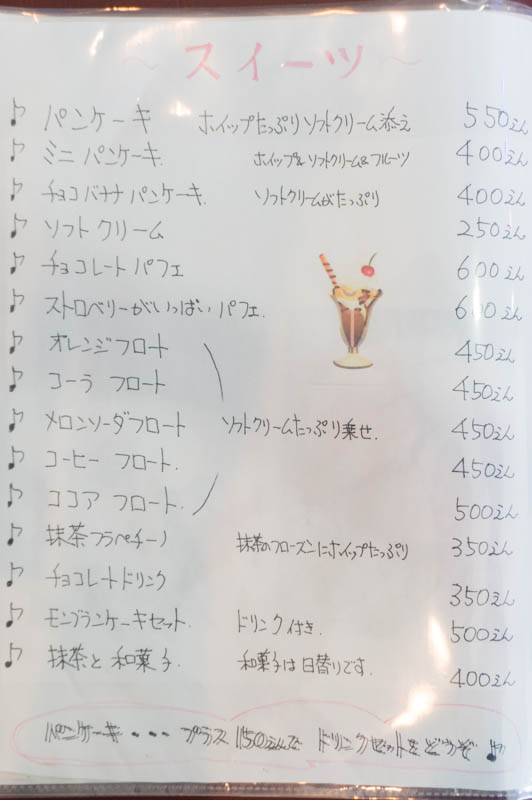 ～スイーツ～
♪ パンケーキ ホイップたっぷりソフトクリーム添え 550えん
♪ ミニ パンケーキ. ホイップ&ソフトクリーム&フルーツ 400えん
♪ チョコバナナパンケーキ. ソフトクリームがたっぷり 400えん
♪ ソフトクリーム 250えん
♪ チョコレートパフェ 600えん
♪ ストロベリーがいっぱいパフェ. 600えん
♪ オレンジフロート 450えん
♪ コーラ フロート 450えん
♪ メロンソーダフロート ソフトクリームたっぷり乗せ. 450えん
♪ コーヒー フロート. 450えん
♪ ココア フロート. 500えん
♪ 抹茶フラペチーノ 抹茶のフローズンにホイップたっぷり 350えん
♪ チョコレートドリンク 350えん
♪ モンブランケーキセット. ドリンク付き. 500えん
♪ 抹茶と和菓子. 和菓子は日替りです. 400えん
パンケーキ・・・プラス150えんで ドリンクセットをどうぞ♪